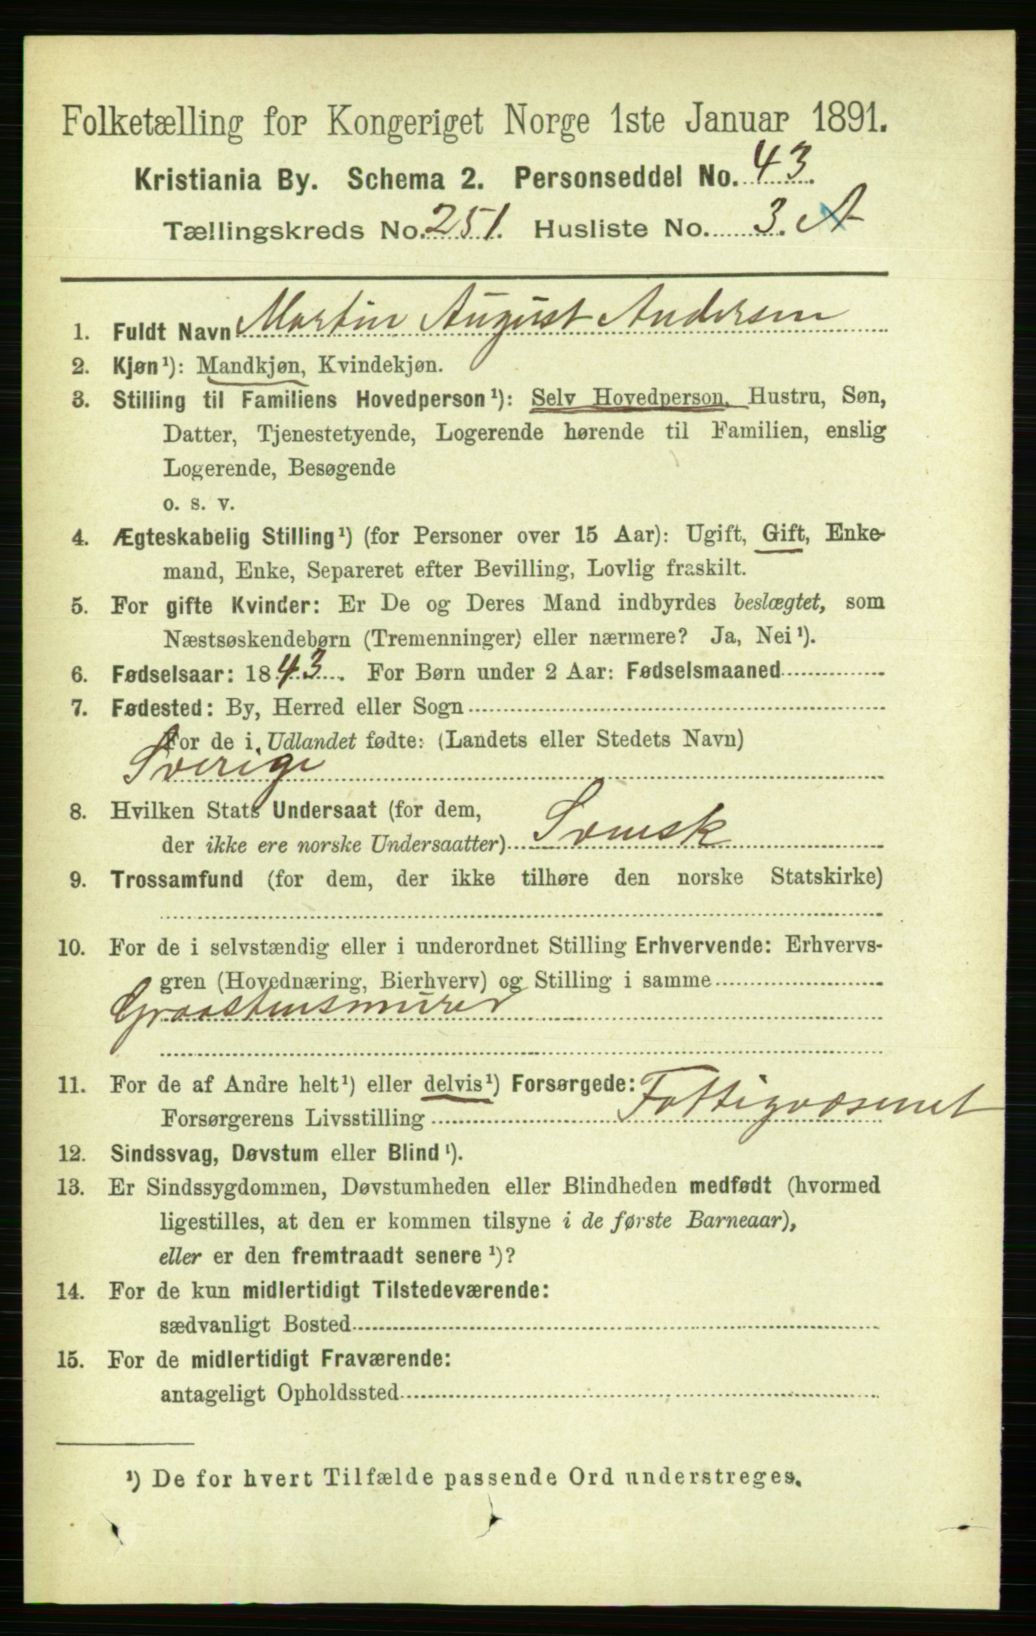 Folketælling for Kongeriget Norge 1ste Januar 1891.
Kristiania By. Schema 2. Personseddel No. 43.
Tællingskreds No. 251. Husliste No. 3. A
1. Fuldt Navn Martin August Andersen
2. Kjøn¹): Mandkjøn, Kvindekjøn.
3. Stilling til Familiens Hovedperson¹): Selv Hovedperson, Hustru, Søn,
Datter, Tjenestetyende, Logerende hørende til Familien, enslig
Logerende, Besøgende
o. s. v.
4. Ægteskabelig Stilling¹) (for Personer over 15 Aar): Ugift, Gift, Enke-
mand, Enke, Separeret efter Bevilling, Lovlig fraskilt.
5. For gifte Kvinder: Er De og Deres Mand indbyrdes beslægtet, som
Næstsøskendebørn (Tremenninger) eller nærmere? Ja, Nei¹).
6. Fødselsaar: 1843. For Børn under 2 Aar: Fødselsmaaned
7. Fødested: By, Herred eller Sogn
For de i Udlandet fødte: (Landets eller Stedets Navn)
Sverige
8. Hvilken Stats Undersaat (for dem,
der ikke ere norske Undersaatter) Svensk
9. Trossamfund (for dem, der ikke tilhøre den norske Statskirke)
10. For de i selvstændig eller i underordnet Stilling Erhvervende: Erhvervs-
gren (Hovednæring, Bierhverv) og Stilling i samme
Graastensmurer
11. For de af Andre helt¹) eller delvis¹) Forsørgede:
Forsørgerens Livsstilling Fattigvæsenet
12. Sindssvag, Døvstum eller Blind¹).
13. Er Sindssygdommen, Døvstumheden eller Blindheden medfødt (hvormed
ligestilles, at den er kommen tilsyne i de første Barneaar),
eller er den fremtraadt senere¹)?
14. For de kun midlertidigt Tilstedeværende:
sædvanligt Bosted
15. For de midlertidigt Fraværende:
antageligt Opholdssted
¹) De for hvert Tilfælde passende Ord understreges.